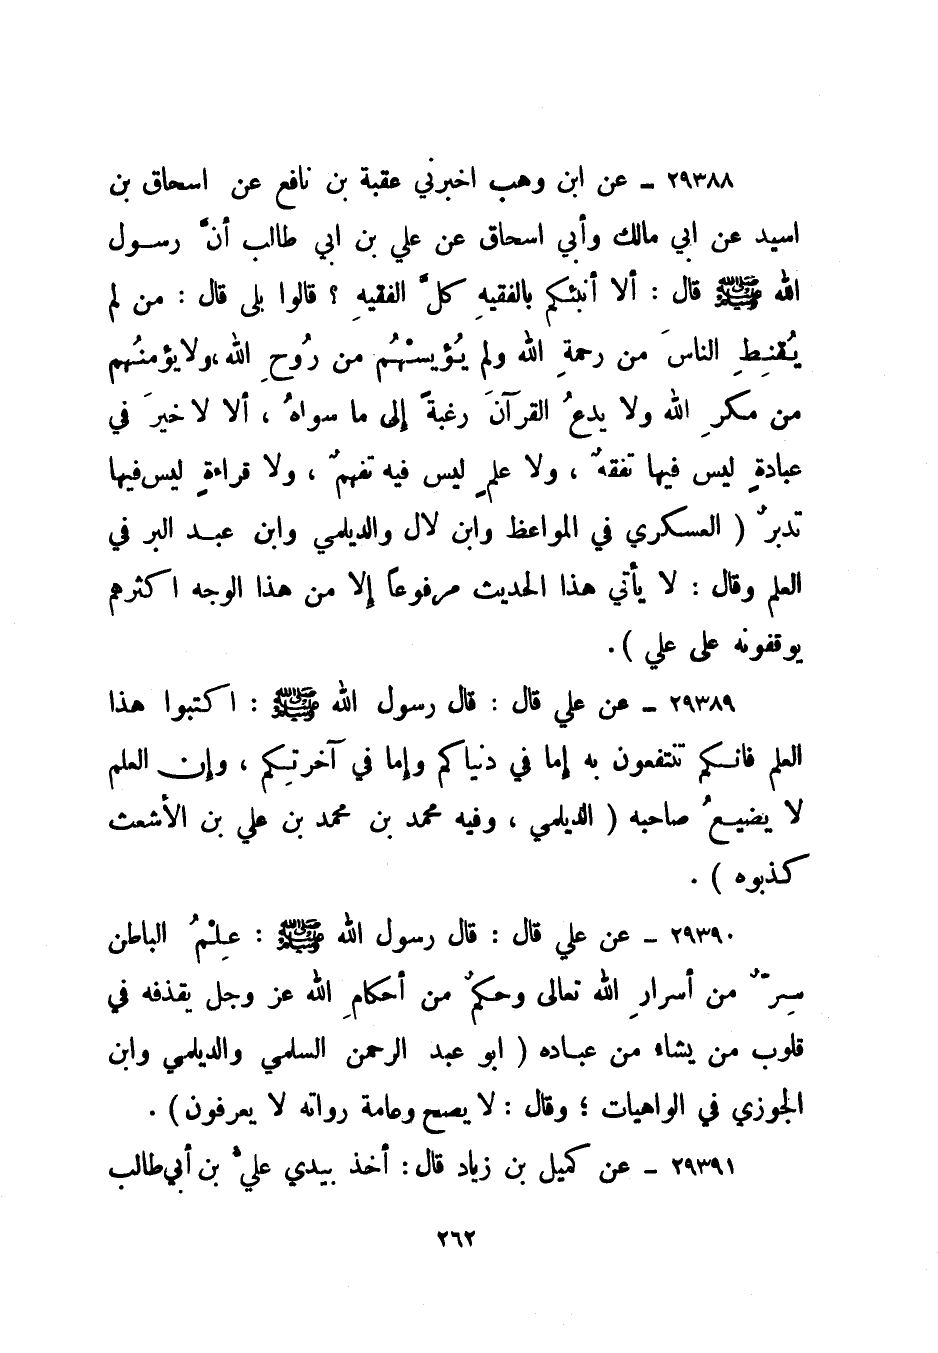 ٢٩٣٨٨ ـ عن ابن وهب اخبرني عقبة بن نافع عن اسحاق بن
اسيد عن ابي مالك وأبي اسحاق عن علي بن ابي طالب أنَّ رسول
الله ﷺ قال : ألا أنبئكم بالفقيهِ كلَّ الفقيهِ ؟ قالوا بلى قال : من لم
يُقنِطِ الناسَ من رحمةِ الله ولم يُؤيسنْهُم من رُوحِ الله،ولايؤمنُهم
من مكرِ الله ولا يدعُ القرآنَ رغبةً إلى ما سواهُ ، ألا لا خيرَ في
عبادةٍ ليس فيها تفقهٌ ، ولا علمٍ ليس فيه تفهمٌ ، ولا قراءةٍ ليس فيها
تدبرٌ ( العسكري في المواعظ وابن لال والديلمي وابن عبد البر في
العلم وقال : لا يأتي هذا الحديث مرفوعاً إلا من هذا الوجه اكثرهم
يوقفونه على علي ).
٢٩٣٨٩ ـ عن علي قال : قال رسول الله ﷺ : اكتبوا هذا
العلم فانكم تنتفعون به إما في دنياكم وإما في آخرتِكم ، وإن العلم
لا يضيعُ صاحبه ( الديلمي ، وفيه محمد بن محمد بن علي بن الأشعث
كذبوه ) .
٢٩٣٩٠ ـ عن علي قال : قال رسول الله ﷺ : عِلْمُ الباطن
سِرٌّ من أسرارِ الله تعالى وحكمٌ من أحكامِ الله عز وجل يقذفه في
قلوب من يشاء من عباده ( ابو عبد الرحمن السلمي والديلمي وابن
الجوزي في الواهيات ؛ وقال : لا يصح وعامة رواته لا يعرفون ) .
٢٩٣٩١ ـ عن كميل بن زياد قال : أخذ بيدي عليُّ بن أبي طالب
٢٦٢